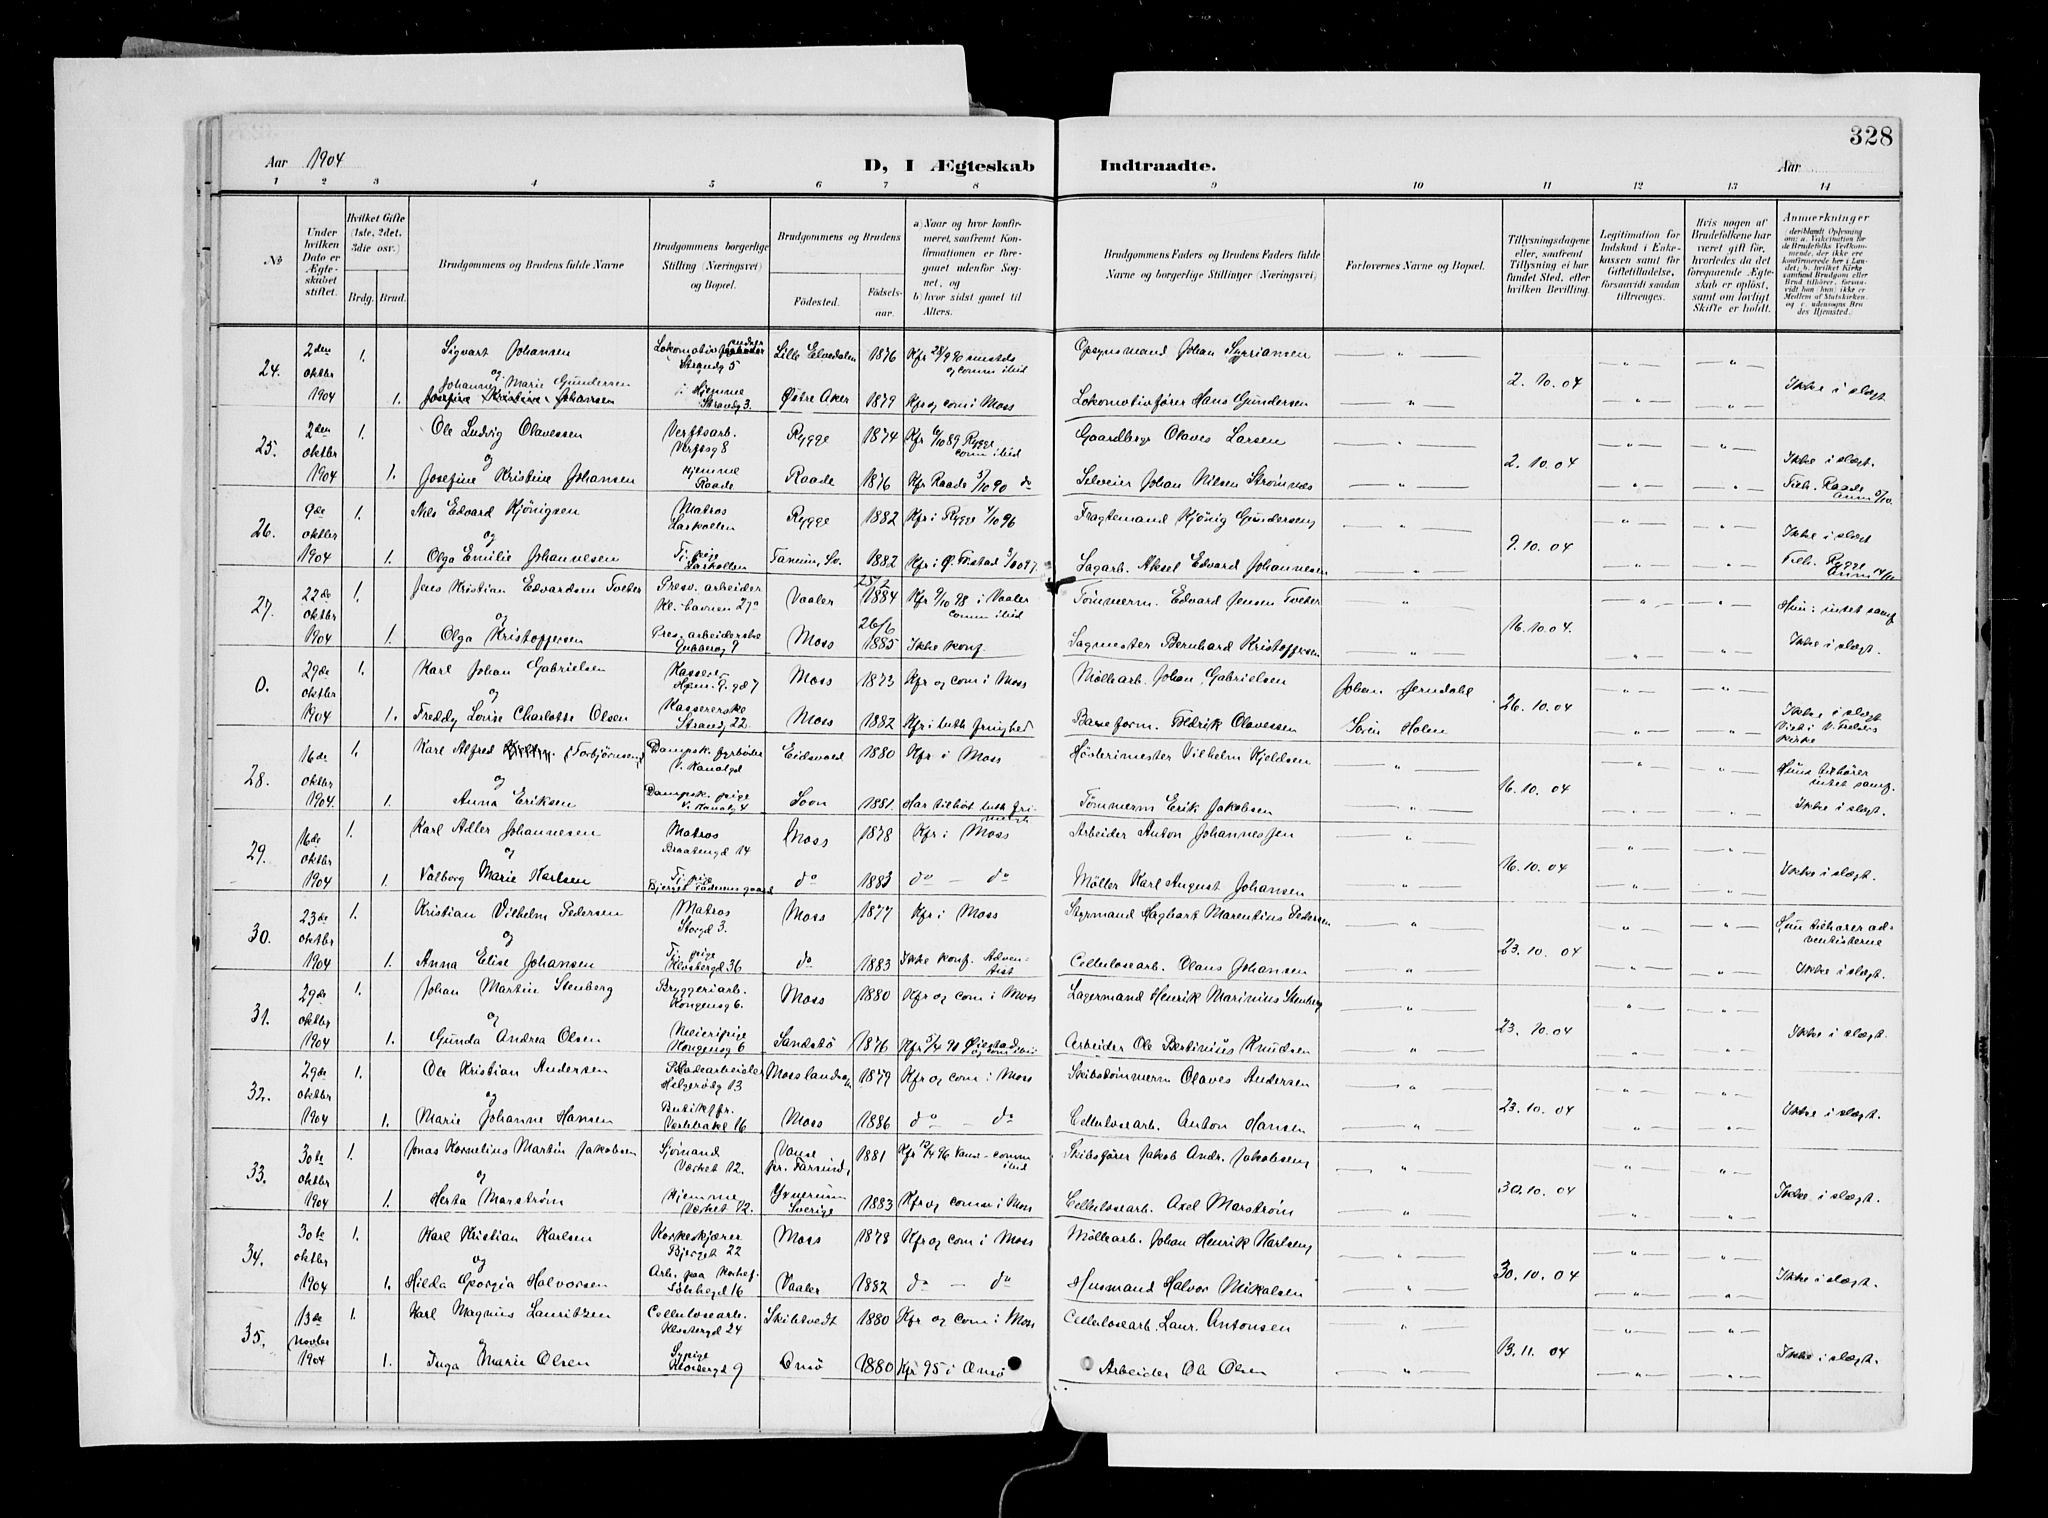 328
Aar 1904
D, I Ægteskab Indtraadte.
Aar
1 2 3 4 5 6 7 8 9 10 11 12 13 14
No
Under hvilken Dato er Ægteskabet stiftet.
Hvilket Gifte (1ste, 2det, 3die osv.)
Brdg. Brud.
Brudgommens og Brudens fulde Navne
Brudgommens borgerlige Stilling (Næringsvei) og Bopæl.
Brudgommens og Brudens
Fødested. Fødselsaar.
a) Naar og hvor konfirmeret, saafremt Konfirmationen er foregaaet udenfor Sognet, og
b) hvor sidst gaaet til Alters.
Brudgommens Faders og Brudens Faders fulde Navne og borgerlige Stillinger (Næringsvei)
Forlovernes Navne og Bopæl.
Tillysningsdagene eller, saafremt Tillysning ei har fundet Sted, efter hvilken Bevilling.
Legitimation for Indskud i Enkekassen samt for Giftetilladelse, forsaavidt saadan tiltrænges.
Hvis nogen af Brudefolkene har været gift før, hvorledes da det foregaaende Ægteskab er opløst, samt om lovligt Skifte er holdt.
Anmerkninger
24. 2den oktbr 1904 1. Sigvart Johansen Strandg 5 Lille Elvedalen 1876 Kfr 28/9 90 og comm ibid Opsynsmand Johan
og
Johanne Marie Gundersen
1. Josefine Kristine Johansen Hjemme Strandg 3. Østre Aker 1879 Kfr og com i Moss Lokomotivfører Hans Gundersen 2. 10. 04 Ikke i slægt
25. 2den oktbr 1904 1. Ole Ludvig Olavessen Verftsarb. Verftsg 8 Rygge 1874 Kfr 6/10 89 Rygge comm ibid Gaardbrgr Olaves Larsen
og
1. Josefine Kristine Johansen Hjemme Raade Raade 1876 Kfr Raade 5/10 90 do Selveier Johan Nilsen Strømnæs 2. 10. 04 Ikke i slægt.
26. 9de oktbr 1904 1. Nils Edvard Kjønigsen Matros Larkollen Rygge 1882 Kfr i Rygge 4/10 96 Fragtemand Kjønig Gundersen
og
1. Olga Emilie Johannesen Tj. pige Larkollen Tanum, Sv. 1882 Kfr i Ø. Fristad 3/10 97. Lagarb. Aksel Edvard Johannesen 9. 10. 04 Ikke i slægt
27. 22de oktbr 1904 1. Jens Kristian Edvardsen Tveter Presv. arbeider Vaaler 1884 Kfr 9/10 98 i Vaaler comm ibid Tømmerm. Edvard Jensen Tveter Hun: intet samf
og
1. Olga Kristoffersen Pres. arbeiderske Moss 26/6 1885 Ikke konf. Sagmester Bernhard Kristoffersen 16. 10. 04. Ikke i slægt.
0. 29de oktbr 1904 1. Karl Johan Gabrielsen Kasserer Moss 1873 Kfr og com i Moss Møllearb. Johan Gabrielsen Johan Jerndahl
og
1. Freddy Lovise Charlotte Olsen Kassererske Strandg 22 Moss 1882 Kfr i luth frmighed Baneform. Fredrik Olavessen Søren Holen 26. 10. 04 Ikke i slægt
28. 16de oktbr 1904. 1. Karl Alfred (Torbjørnsen) Dampsk. fyrbøder V. Kanalgd Eidsvold 1880 Kfr i Moss Høvlerimester Vilhelm Kjeldsen Hun tilhører intet samf.
og
1. Anna Eriksen Dampsk. pige V. Kanalg 4 Soon 1881. Har tilhört luth fri- Tømmerm Erik Jakobsen 16. 10. 04 Ikke i slægt.
29. 16de oktbr 1904 1. Karl Adler Johannesen Matros Braatengd 14 Moss 1878 Kfr i Moss Arbeider Anton Johannessen
og
1. Valborg Marie Karlsen Tj. pige do 1883 do — do Møller Karl August Johansen 16. 10. 04 Ikke i slægt.
30. 23de oktbr 1904 1. Kristian Vilhelm Pedersen Matros Storgd 3. Moss 1877 Kfr i Moss Styrmand Hagbart Marentius Pedersen Hun tilhører adventisterne
og
1. Anna Elise Johansen Tj. pige Klosbergd 36 do 1883 Ikke konf. Adventist Cellulosearb. Olaus Johansen 23. 10. 04 Ikke i slægt.
31. 29de oktbr 1904 1. Johan Martin Stenberg Bryggeriarb. Kongensg 6. Moss 1880 Kfr og com i Moss Lagermand Henrik Marinius Stenberg
og
1. Gunda Andrea Olsen Meieripige Kongensg 6 Sandstø 1876 Kfr 5/4 91 Arbeider Ole Bertinius Knudsen 23. 10. 04 Ikke i slægt.
32. 29de oktbr 1904 1. Ole Kristian Andersen Pladearbeider Helgerødg 13 Mosslandsogn 1879 Kfr og com i Moss Skibstømmerm Olaves Andersen
og
1. Marie Johanne Hansen Butikfr. Verlebakk 16 Moss 1886 do — do Cellulosearb. Anton Hansen 23. 10. 04 Ikke i slægt.
33. 30te oktbr 1904 1. Jonas Kornelius Martin Jakobsen Sjømand Værket 12. Vanse pr. Farsund, 1881 Kfr 12/4 96 Vanse comm ibid Skibsfører Jakob Andr. Jakobsen
og
1. Herta Marstrøm Hjemme Værket 12. Sverige 1883 Kfr og comm i Moss Cellulosearb. Axel Marstrøm 30. 10. 04 Ikke i slægt.
34. 30te oktbr 1904 1. Karl Kristian Karlsen Korkeskjærer Bjerget 22 Moss 1878 Kfr og com i Moss Møllearb. Johan Henrik Karlsen
og
1. Hilda Georgia Halvorsen Arb. paa Korkef. 16 Vaaler 1882 do — do Husmand Halvor Mikalsen 30. 10. 04 Ikke i slægt.
35. 13de novbr 1904 1. Karl Magnus Lauritzen Cellulosearb. Klosbergd 24 Skibtvedt 1880 Kfr og com i Moss Cellulosearb. Laur. Antonsen
og
1. Inga Marie Olsen Sypige Klosbergd 9 Onsø 1880 Kfr 95 i Onsø Arbeider Ole Olsen 13. 11. 04 Ikke i slægt.